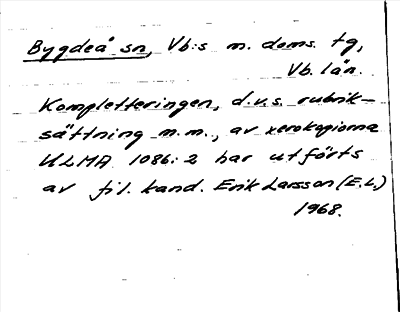 Bygdeå sn, Vb:s m. doms. tg,
Vb. län.
Kompletteringen, d.v.s. rubrik-
sättning m.m., av xerokopiorna
ULMA 1086:2 har utförts
av fil. kand. Erik Larsson (E.L.)
1968.